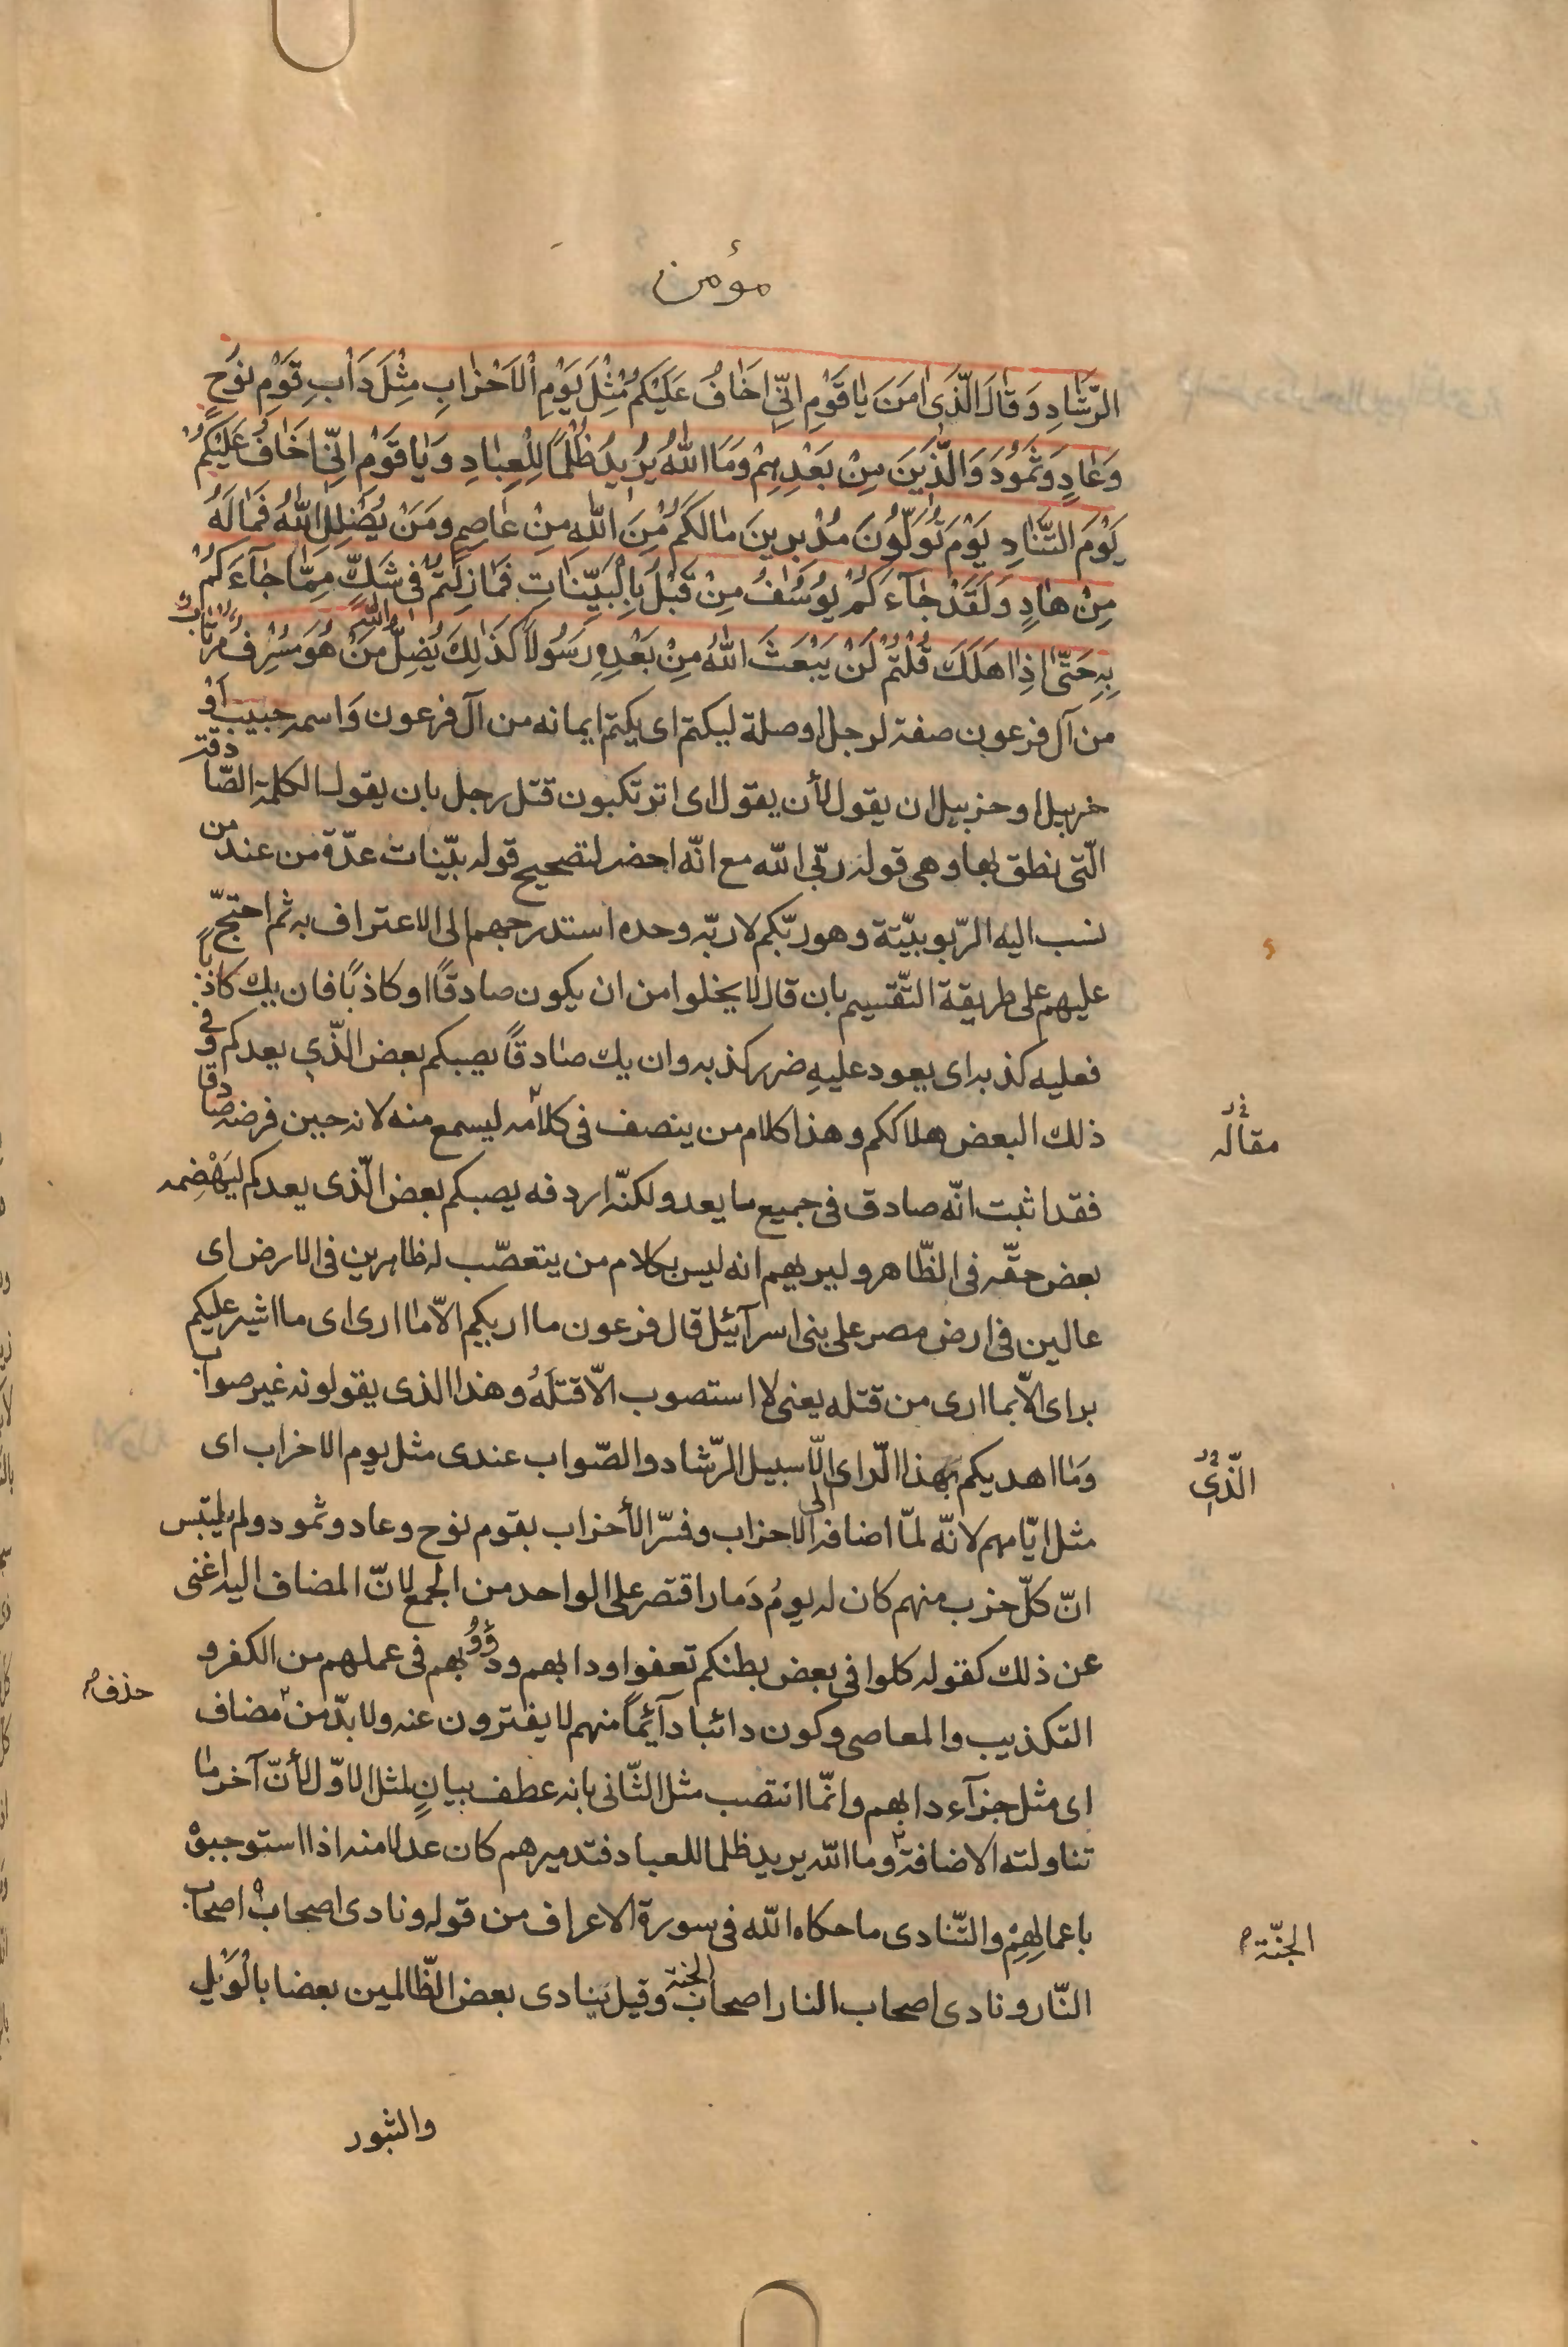 مؤمن
الرَّشَادِ وَقَالَ الَّذَى اٰمَنَ يٰا قَوْمِ اِنِّى اَخَافُ عَلَيْكُمْ مِثْلَ يَوْمِ الْاَحْزٰابِ مِثْلَ دَاْبِ قَوْمِ نوُحٍ
وَعٰادٍ وَثَموُدَ وَالَّذيَنَ مِنْ بَعْدِهِمْ وَمَا اللّٰهُ يرُيُد ظُلْمًا لِلْعِبٰادِ وَيٰا قَوْمِ اِنِّى اَخَافُ عَلَيْكُمْ
يَوْمَ التَّنٰادِ يَوْمَ تُوَلّوُنَ مُدْبِرينَ مٰالَكُمْ مِنَ اللّٰهِ مِنْ عٰاصِمٍ وَمَنْ يُضْلِلِ اللّٰهُ فَمٰالَهُ
مِنْ هٰادٍ وَلَقَدْ جٰآءَكُمْ يوُسُفُ مِنْ قَبْلُ بِالْبَيِّنَاتِ فَمٰازِلْتُمْ فى شَكٍّ مِمَّا جٰآءَكُمْ
بِهِ حَتّٰى اِذٰا هَلَكَ قُلْتُمْ لَنْ يَبْعَثَ اللّٰهُ مِنْ بَعْدِهِ رَسُولاً كَذٰلِكَ يُضِلُّ اللّٰهُ مَنْ هُوَ مُسْرِفٌ مُرْتٰابٌ
من آل فرعون صفة لرجل او صلة ليكتم اى يكتم ايمانه من آل فرعون وَاسمه حبيب اَوْ
خربيل او حزبيل ان يقول لأن يقول اى اترتكبون قتل رجل بان يقول الكلمة الصّادقة
الّتى نطق بها وهى قوله ربّى اللّه مع انّه احضر لتصحيح قوله بيّنات عدّة من عند من
نسب اليه الرّبوبيّة وهو ربّكم لا ربّه وحده استدرجهم الى الاعتراف به ثم احتجّ
عليهم على طريقة التّقسيم بان قال لا يخلوا من ان يكون صادقًا او كاذبًا فان يك كاذبًا
فعليه كذبه اى يعود عليهِ ضرر كذبه وان يك صٰادقًا يصبكم بعض الّذى يعدكم وفى
ذلك البعض هلاككم وهذا كلام من ينصف فى كلامه ليسمع منه لانه حين فرضه صٰادقًا
مقاله
فقد اثبت انّه صادق فى جميع ما يعد ولكنّه اردفه يصبكم بعض الّذى يعدكم ليَهْضِمه
بعض حقّه فى الظّاهر وليريهم انه ليس بكلام من يتعصّب له ظاهرين فى الارض اى
عالين فى ارض مصر على بنى اسرآئيل قال فرعون ما اريكم الاّ مٰا ارى اى ما اشير عليكم
براى الاّ بما ارى من قتله يعنى لا استصوب الاّ قتلَهُ وهذا الذى يقولونه غير صواب
وَمٰا اهديكم بهذا الّراى الّا سبيل الرّشاد والصّواب عندى مثل يوم الاحزاب اى
الّذى
مثل ايّامهم لانّه لمّا اضافه الى الاحزاب وفسّر الأحزاب بقوم نوح وعاد وثمود ولم يلتبس
انّ كلّ حزب منهم كان له يومُ دَمار اقتصر على الواحد من الجمع لانّ المضاف اليه اغنى
عن ذلك كقوله كلوا فى بعض بطنكم تعفوا ودابهم ودؤوبهم فى عملهم من الكفر و
التكذيب والمعاصى وكون دائبا دآئِمًا منهم لا يفترون عنه ولا بدّ من مضاف
حذف
اى مثل جزآء دابهم وانّما انتصب مثل الثّانى بانه عطف بيانٍ لمثل الاوّل لأنّ آخر مٰا
تناولته الاضافة وما اللّه يريد ظلما للعباد فتدميرهم كان عدلا منه اذا استوجبوْ
باعمالِهِمْ والتّنادى ما حكاه اللّه فى سورة الاعراف من قوله ونادى اصحاب اصحاب
الجنّة
النّار ونادى اصحاب النار اصحاب الجنة وقيل ينادى بعض الظّالمين بعضا بالْوَيْلِ
والثبور